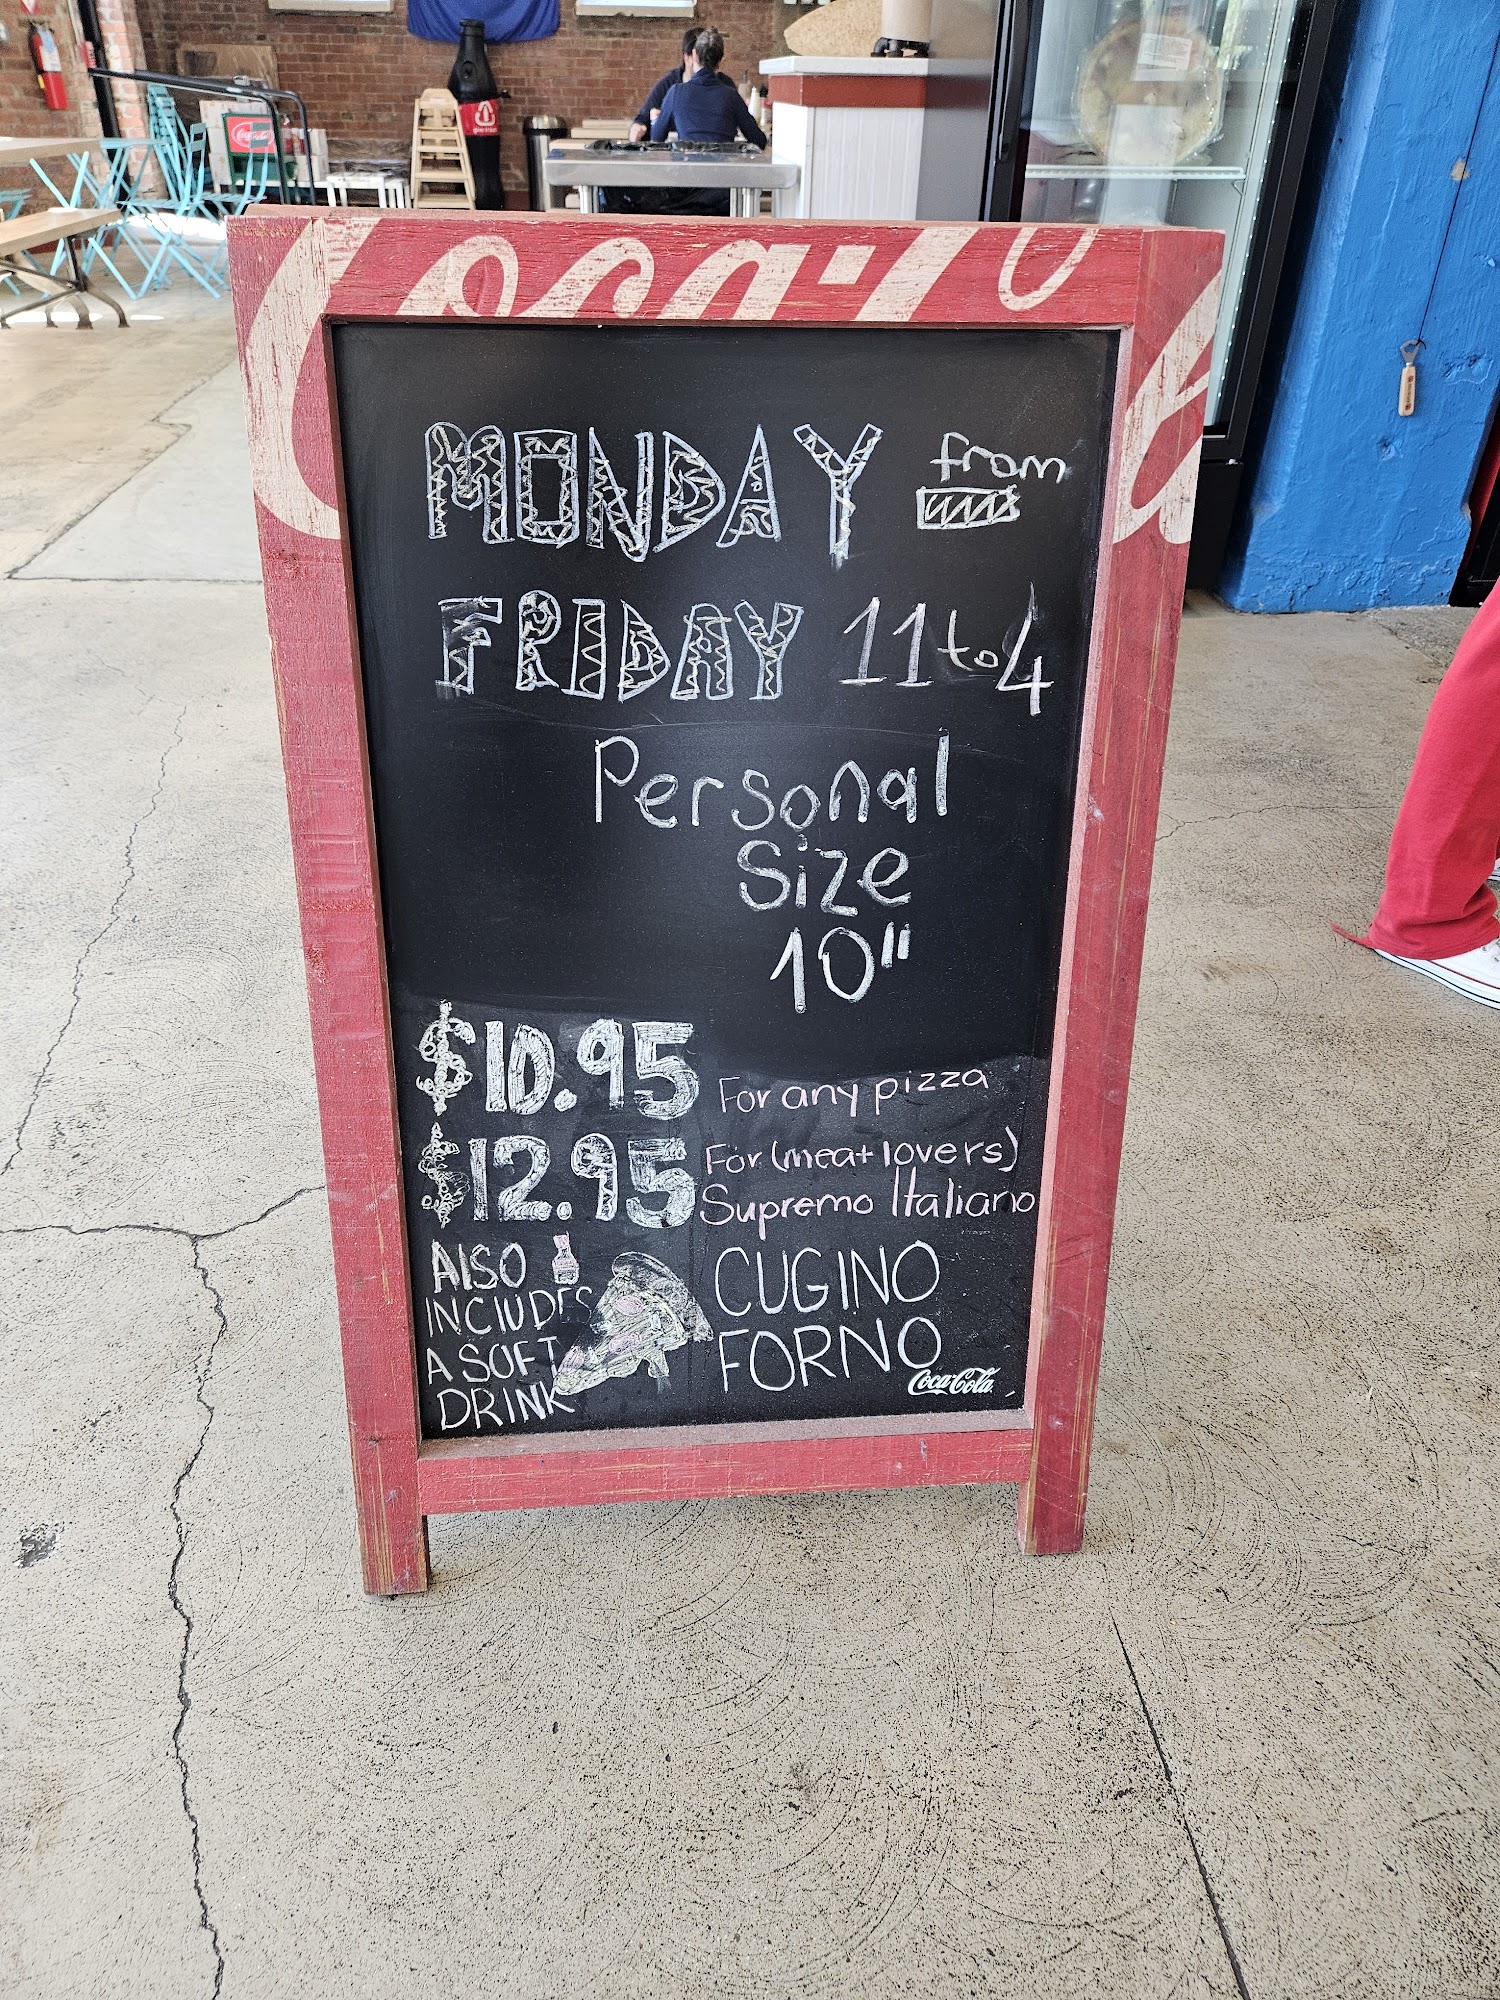 Coca-Cola
MONDAY from
FRIDAY 11 to 4
Personal
Size
10"
$10.95 For any pizza
$12.95 For (meat lovers)
Supremo Italiano
AlSO
INClUDES
A SOFT
DRINK
CUGINO
FORNO
Coca-Cola